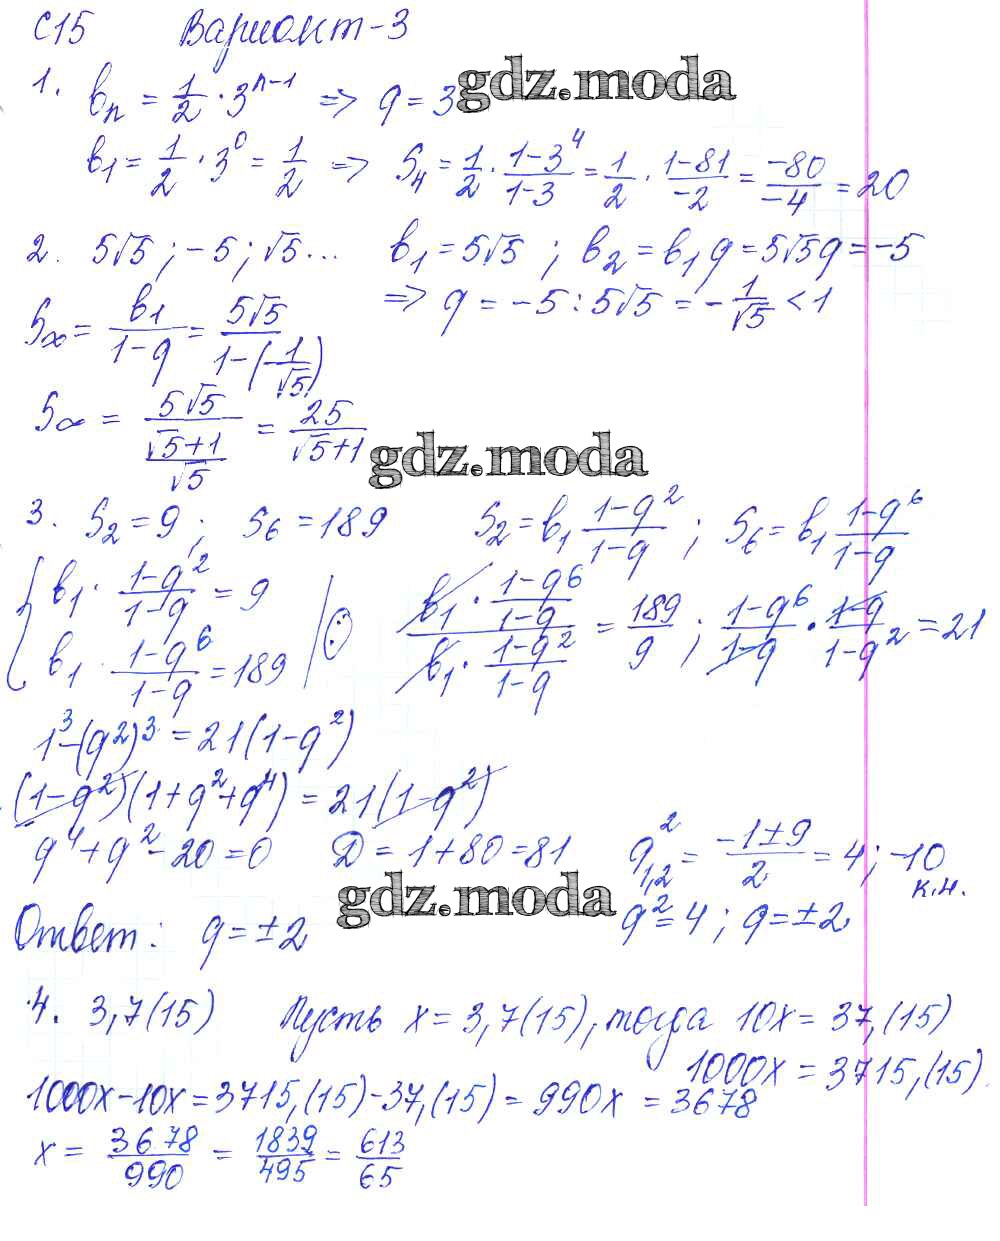 С15 Вариант-3
1. bₙ = 1/2 · 3ⁿ⁻¹ => q = 3
gdz.moda
b₁ = 1/2 · 3⁰ = 1/2 => S₄ = 1/2 · (1-3⁴)/(1-3) = 1/2 · (1-81)/(-2) = (-80)/(-4) = 20
2. 5√5 ; -5 ; √5 ... b₁ = 5√5 ; b₂ = b₁q = 5√5q = -5
=> q = -5 : 5√5 = -1/√5 < 1
S∞ = b₁/(1-q) = 5√5/(1-(-1/√5))
S∞ = 5√5/((√5+1)/√5) = 25/(√5+1)
gdz.moda
3. S₂ = 9 ; S₆ = 189 S₂ = b₁ (1-q²)/(1-q) ; S₆ = b₁ (1-q⁶)/(1-q)
{ b₁ · (1-q²)/(1-q) = 9
b₁ · (1-q⁶)/(1-q) = 189 | : (b₁ · (1-q⁶)/(1-q))/(b₁ · (1-q²)/(1-q)) = 189/9 ; (1-q⁶)/(1-q) · (1-q)/(1-q²) = 21
1³-(q²)³ = 21(1-q²)
(1-q²)(1+q²+q⁴) = 21(1-q²)
q⁴+q²-20=0 D = 1+80 = 81 q²₁,₂ = (-1±9)/2 = 4 ; -10
к.н.
gdz.moda
q² = 4 ; q = ±2
Ответ: q = ±2
4. 3,7(15) Пусть x = 3,7(15), тогда 10x = 37,(15)
1000x = 3715,(15)
1000x-10x = 3715,(15)-37,(15) = 990x = 3678
x = 3678/990 = 1839/495 = 613/65